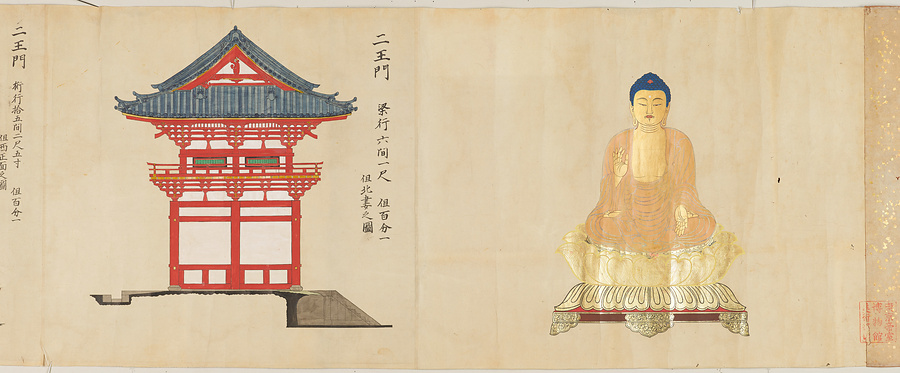 二王門
梁行六間一尺 但百分一
但北妻之圖
二王門
桁行拾五間二尺五寸 但百分一
但西正面之圖
博物館